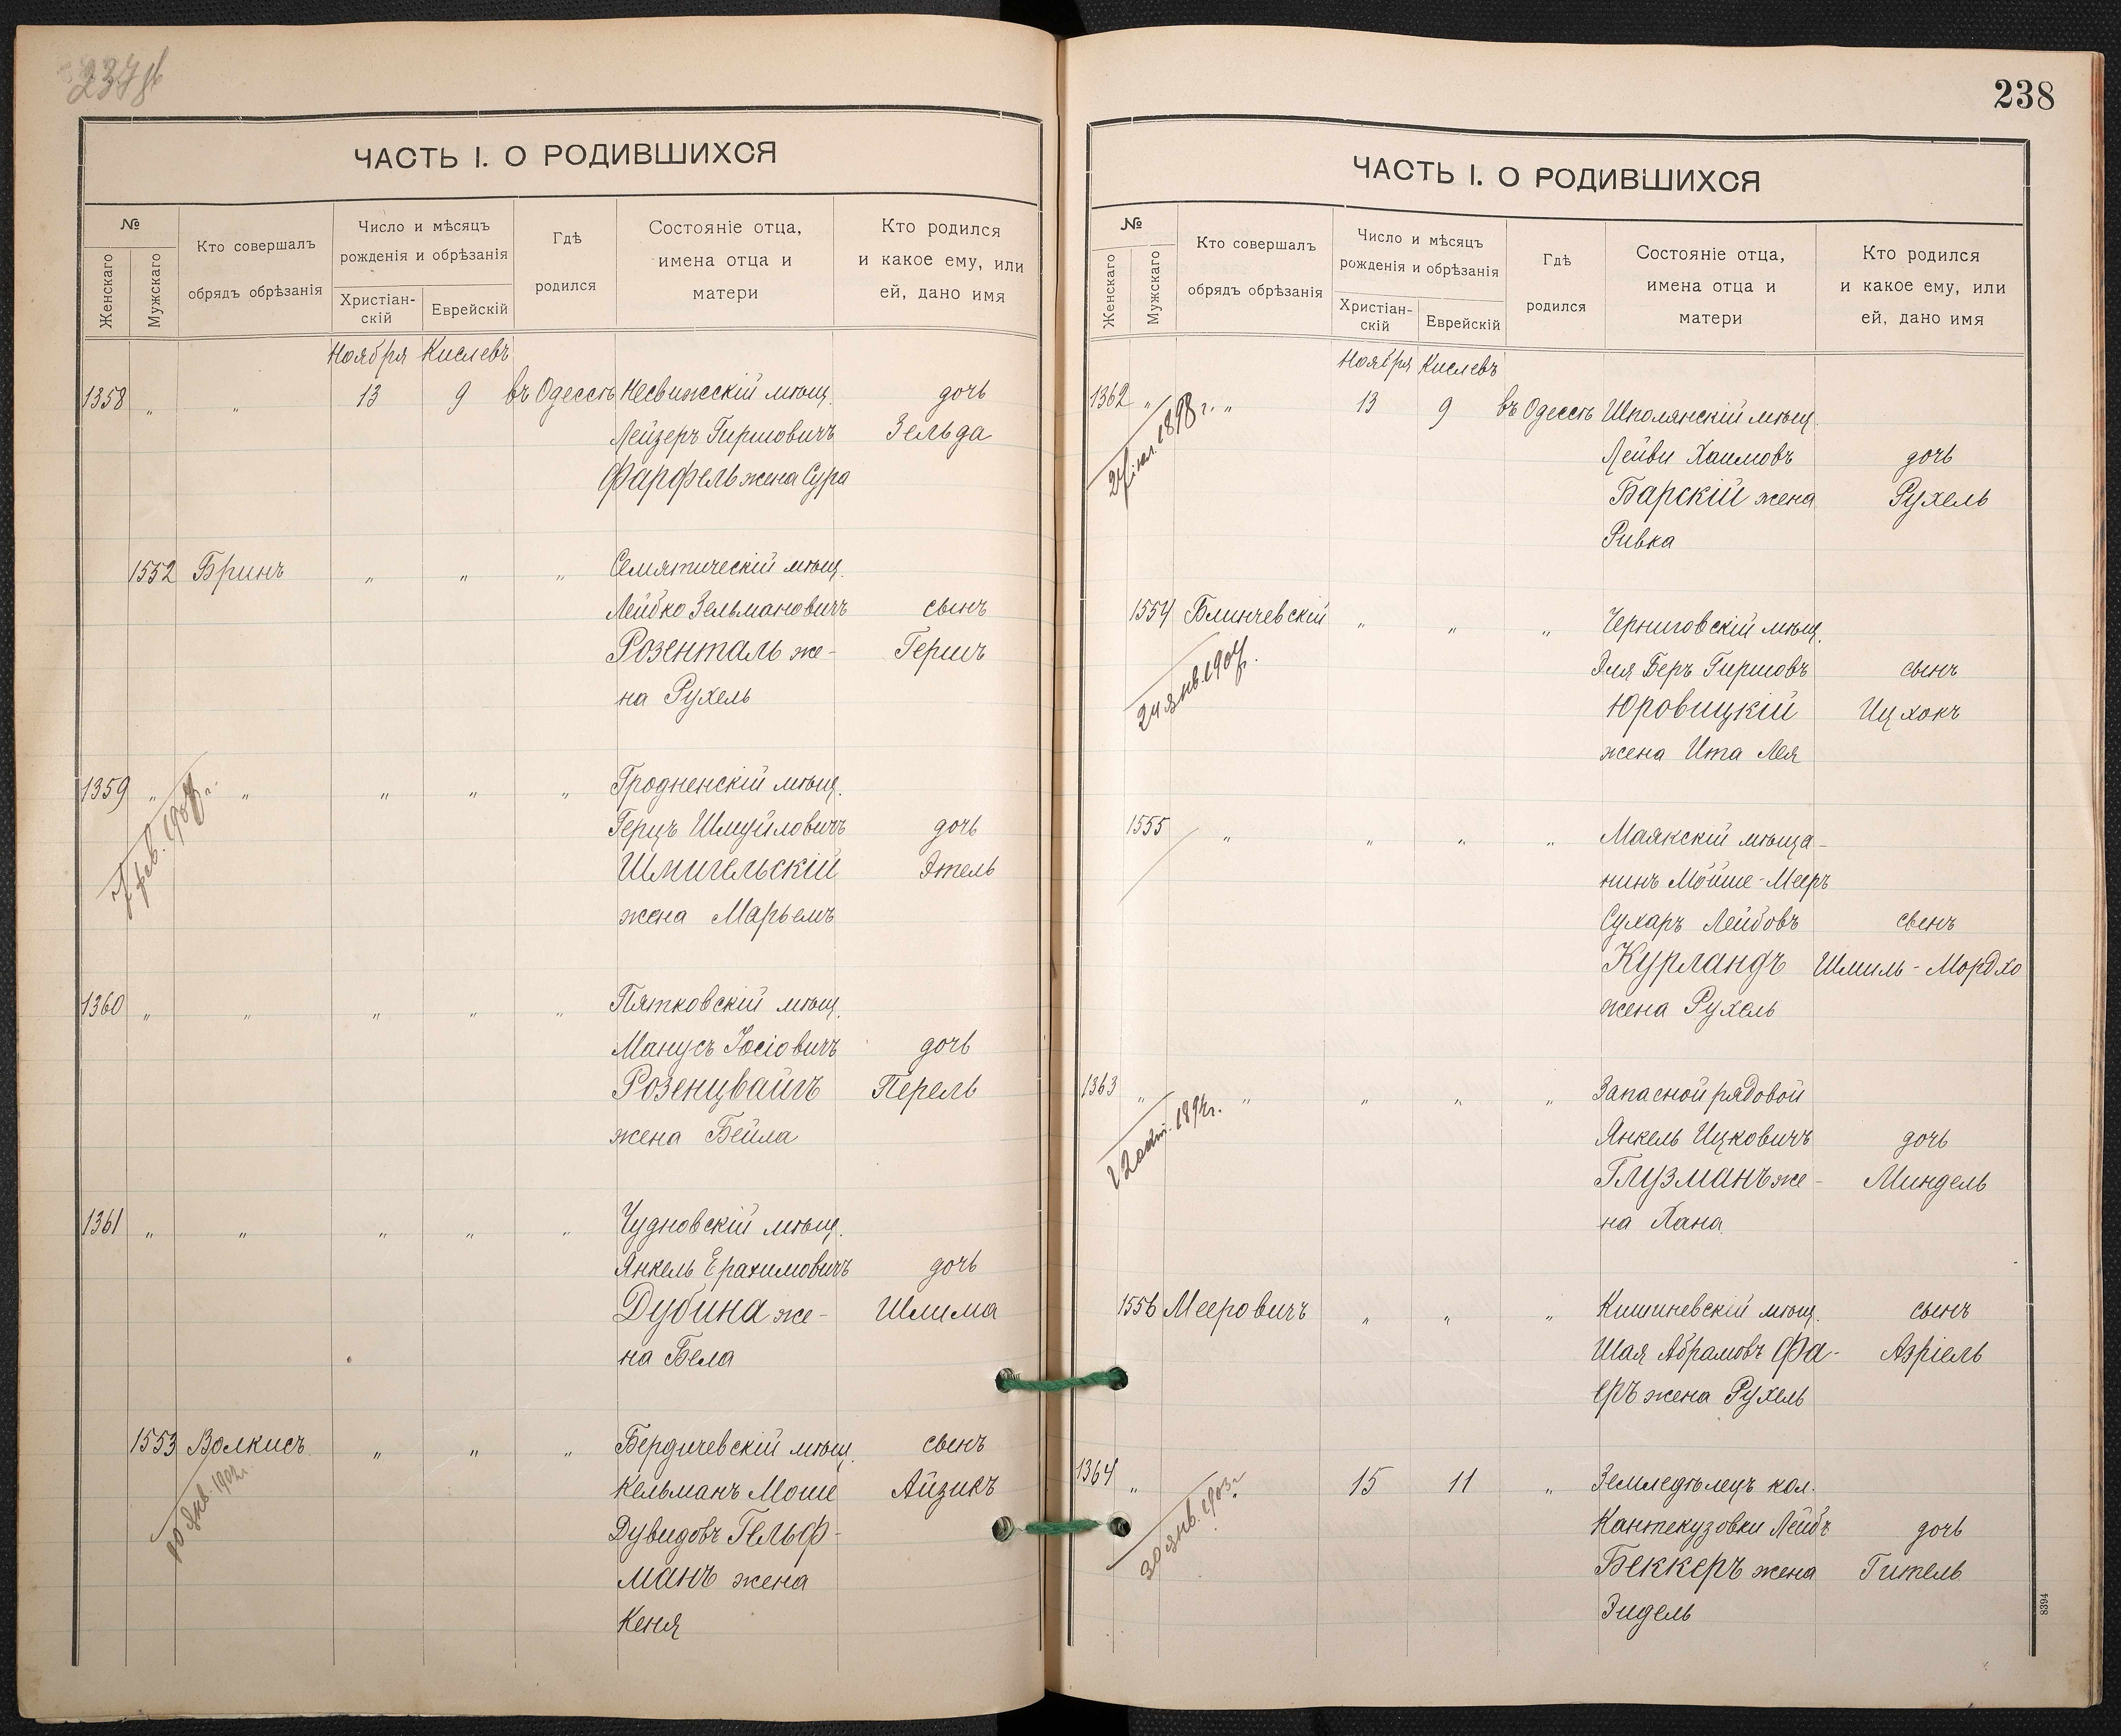 237об
ЧАСТЬ I. О РОДИВШИХСЯ
№
Женскаго
Мужскаго
Кто совершалъ
обрядъ обрѣзанія
Число и мѣсяцъ
рожденія и обрѣзанія
Христіан-
скій
Еврейскій
Гдѣ
родился
Состояніе отца,
имена отца и
матери
Кто родился
и какое ему, или
ей, дано имя
Ноября Кислевъ
1358 „ „ 13 9 въ Одессѣ Несвижсскій мѣщ. дочь
Лейзеръ Гиршовичъ Зельда
Фарфель жена Сура
1552 Бринъ „ „ „ Семятическій мѣщ.
Лейбко Зельмановичъ сынъ
Розенталь же- Гершъ
на Рухель
1359 „ „ „ „ „ Гродненскій мѣщ.
Герцъ Шмуйловичъ дочь
Шмигельскій Этель
жена Марьемъ
фев. 1907г.
1360 „ „ „ „ „ Пятковскій мѣщ.
Манусъ Іосіовичъ дочь
Розенцвайгъ Перель
жена Бейла
1361 „ „ „ „ „ Чудновскій мѣщ.
Янкель Ерахимовичъ дочь
Дубина же- Шлима
на Бела
1553 Волкисъ „ „ „ Бердичевскій мѣщ. сынъ
Кельманъ Моше Айзикъ
Дувидовъ Гельф-
манъ жена
Кеня
10 янв. 1902г.
238
ЧАСТЬ I. О РОДИВШИХСЯ
№
Женскаго
Мужскаго
Кто совершалъ
обрядъ обрѣзанія
Число и мѣсяцъ
рожденія и обрѣзанія
Христіан-
скій
Еврейскій
Гдѣ
родился
Состояніе отца,
имена отца и
матери
Кто родился
и какое ему, или
ей, дано имя
Ноября Кислевъ
1362 „ „ 13 9 въ Одессѣ Шполянскій мѣщ.
Лейви Хаимовъ дочь
Барскій жена Рухель
Ривка
1898г.
1554 Блинчевскій „ „ „ Черниговскій мѣщ.
Эля Беръ Гиршовъ сынъ
Юровицкій Ицхокъ
жена Ита Лея
24 янв. 1907г.
1555 „ „ „ „ Маякскій мѣща-
нинъ Мойше-Мееръ
Сухаръ Лейбовъ сынъ
Курландъ Шмиль-Мордхо
жена Рухель
1363 „ „ „ „ „ Запасной рядовой
Янкель Ицковичъ дочь
Глузманъ же- Миндель
на Хана
1556 Мееровичъ „ „ „ Кишиневскій мѣщ. сынъ
Шая Абрамовъ Фа- Азріель
еръ жена Рухель
1364 „ 15 11 „ Земледѣлецъ кол.
Кантекузовки Лейбъ дочь
Беккеръ жена Гитель
Эидель
30 янв. 1903г.
8394